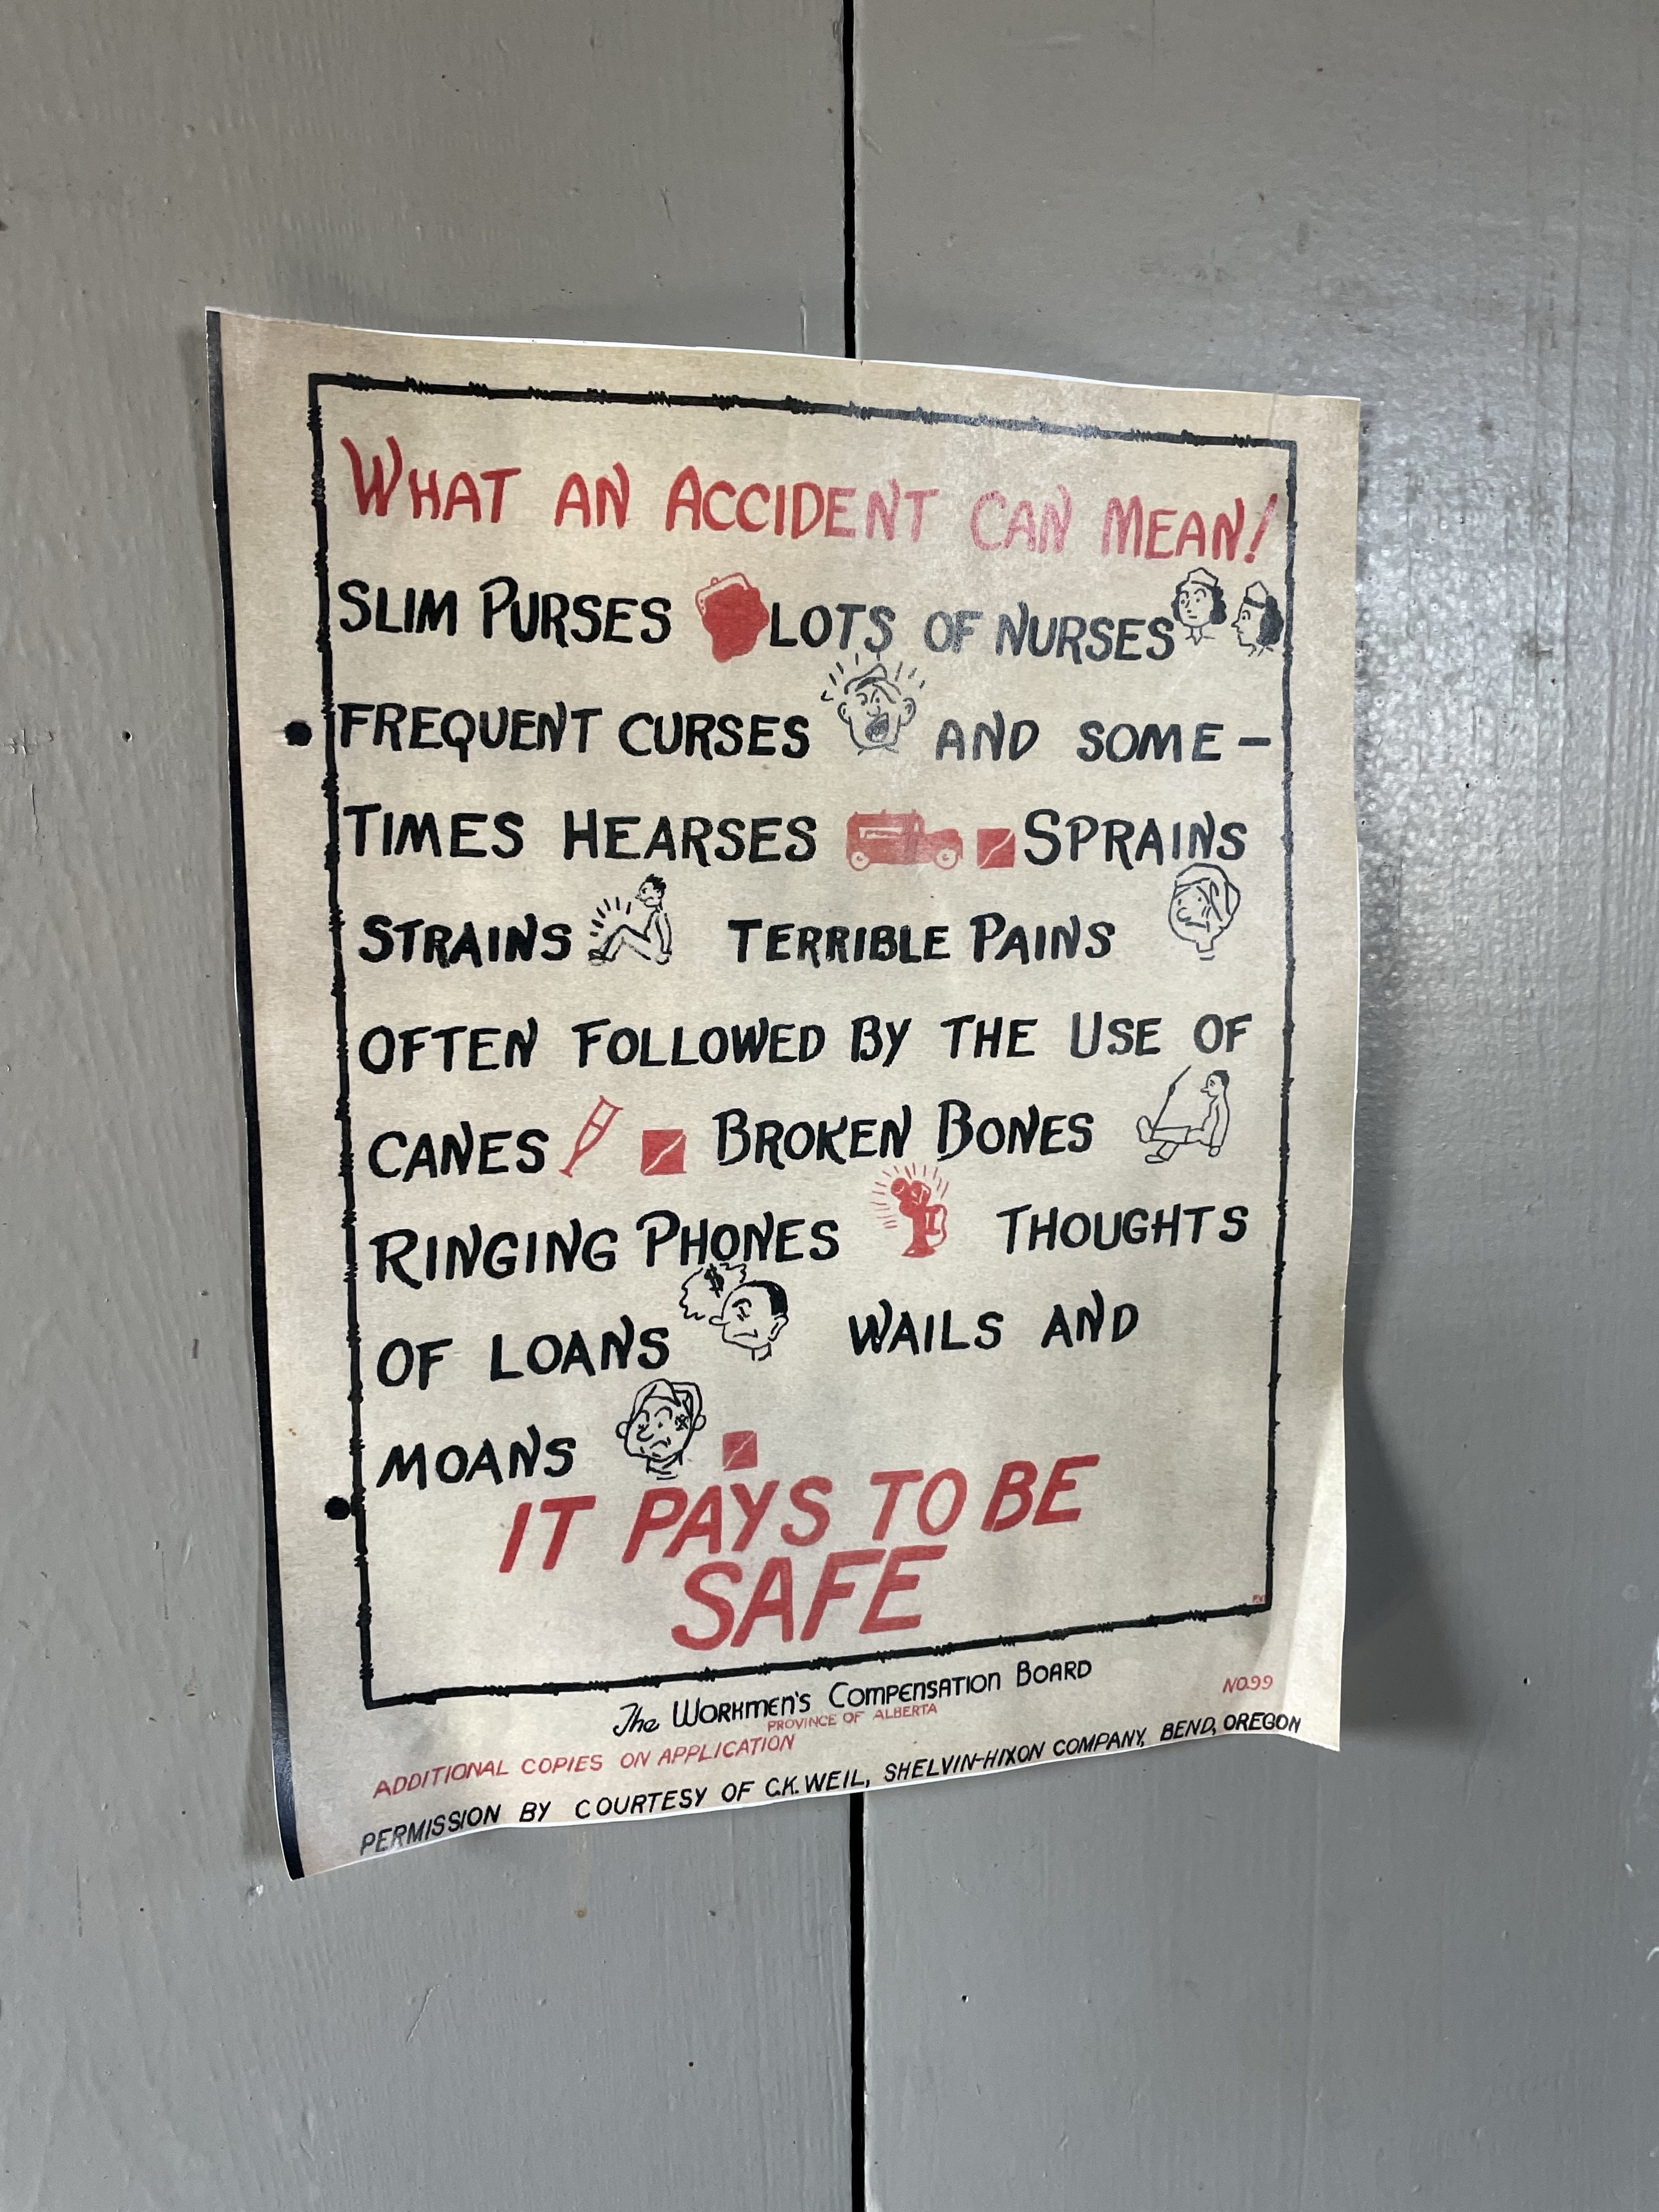 WHAT AN ACCIDENT CAN MEAN!
SLIM PURSES LOTS OF NURSES
FREQUENT CURSES AND SOME-
TIMES HEARSES SPRAINS
STRAINS TERRIBLE PAINS
OFTEN FOLLOWED BY THE USE OF
CANES BROKEN BONES
RINGING PHONES THOUGHTS
$
OF LOANS WAILS AND
MOANS
IT PAYS TO BE
SAFE
The WORKMEN'S COMPENSATION BOARD
PROVINCE OF ALBERTA
NO.99
ADDITIONAL COPIES ON APPLICATION
PERMISSION BY COURTESY OF C.K. WEIL, SHELVIN-HIXON COMPANY, BEND, OREGON